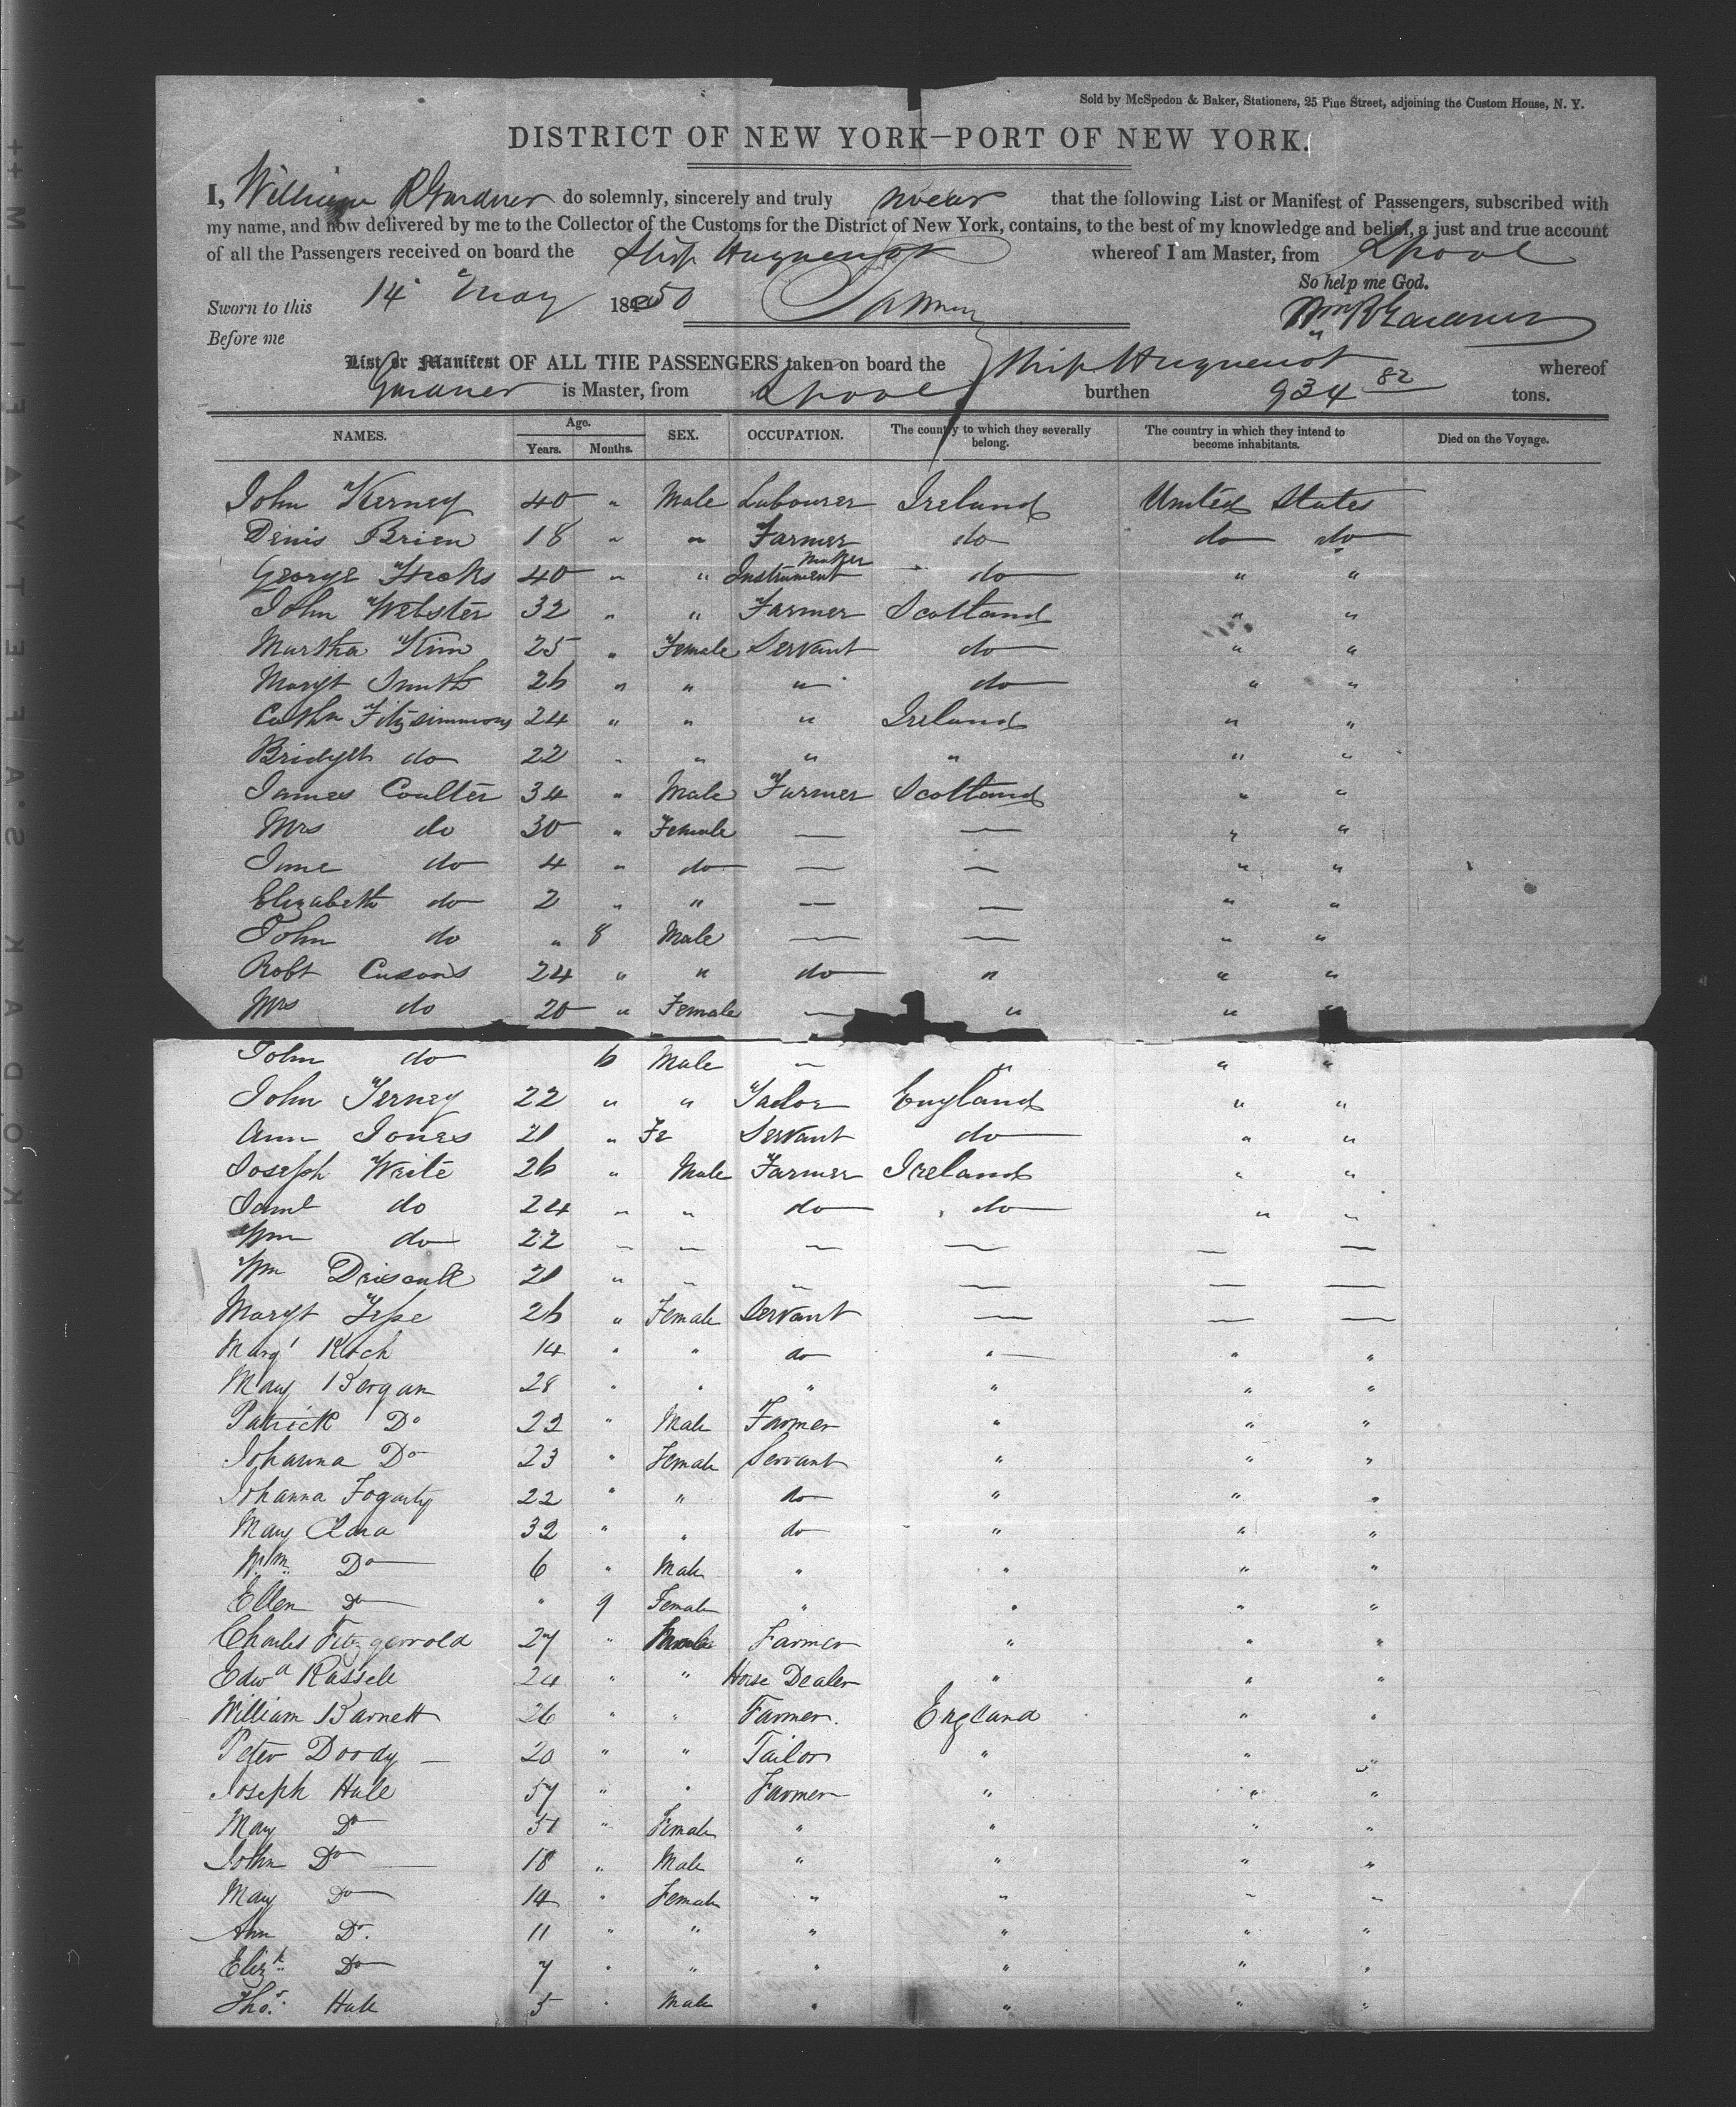 Sold by McSpedon & Baker, Stationers, 25 Pine Street, adjoining the Custom House, N. Y.
DISTRICT OF NEW YORK—PORT OF NEW YORK.
I, William R Gardner do solemnly, sincerely and truly swear that the following List or Manifest of Passengers, subscribed with
my name, and now delivered by me to the Collector of the Customs for the District of New York, contains, to the best of my knowledge and belief, a just and true account
of all the Passengers received on board the Ship Huguenot whereof I am Master, from Lpool
So help me God.
Sworn to this 14 May 1850
Wm R Gardner
Before me
List or Manifest OF ALL THE PASSENGERS taken on board the Ship Huguenot whereof
Gardner is Master, from Lpool burthen 934 82 tons.
NAMES. Age. Years. Months. SEX. OCCUPATION. The country to which they severally belong. The country in which they intend to become inhabitants. Died on the Voyage.
John Kerney 40 " Male Labourer Ireland United States
Denis Brien 18 " " Farmer do do do
George Hooks 40 " " Instrument maker do " "
John Webster 32 " " Farmer Scotland " "
Martha Kim 25 " Female Servant do " "
Margt Smith 26 " " " do " "
Cathn Fitzsimmons 24 " " " Ireland " "
Bridget do 22 " " " " " "
James Coulter 34 " Male Farmer Scotland " "
Mrs do 30 " Female — — " "
Jane do 4 " do — — " "
Elizabeth do 2 " " — — " "
John do " 8 Male — — " "
Robt Cusons 24 " " do " " "
Mrs do 20 " Female — " " "
John do 6 Male — " " "
John Terney 22 " " Tailor England " "
Ann Jones 21 " Fe Servant do " "
Joseph Write 26 " Male Farmer Ireland " "
Saml do 24 " " do do " "
Wm do 22 — — — — — —
Wm Driscoll 21 " " " — — —
Margt 26 " Female Servant — — —
Margt Roch 14 " " do " — " "
Mary Bergan 28 " " " " " "
Patrick Do 22 " Male Farmer " " "
Johanna Do 23 " Female Servant " " "
Johanna Fogarty 22 " " do " " "
Mary Clara 32 " " do " " "
Wm Do 6 " Male " " " "
Ellen Do " 9 Female " " " "
Charles Fitzgerrold 27 " Male Farmer " " "
Edwd Russell 24 " " Horse Dealer " " "
William Barnett 26 " " Farmer. England " "
Peter Doody — 20 " " Tailor " " "
Joseph Hale 57 " " Farmer " " "
Mary Do 51 " Female " " " "
John Do — 18 " Male " " " "
Mary Do 14 " Female " " " "
Ann Do. 11 " " " " " "
Elizh Do 7 " " " " " "
Thos. Hale 5 " Male " " " "